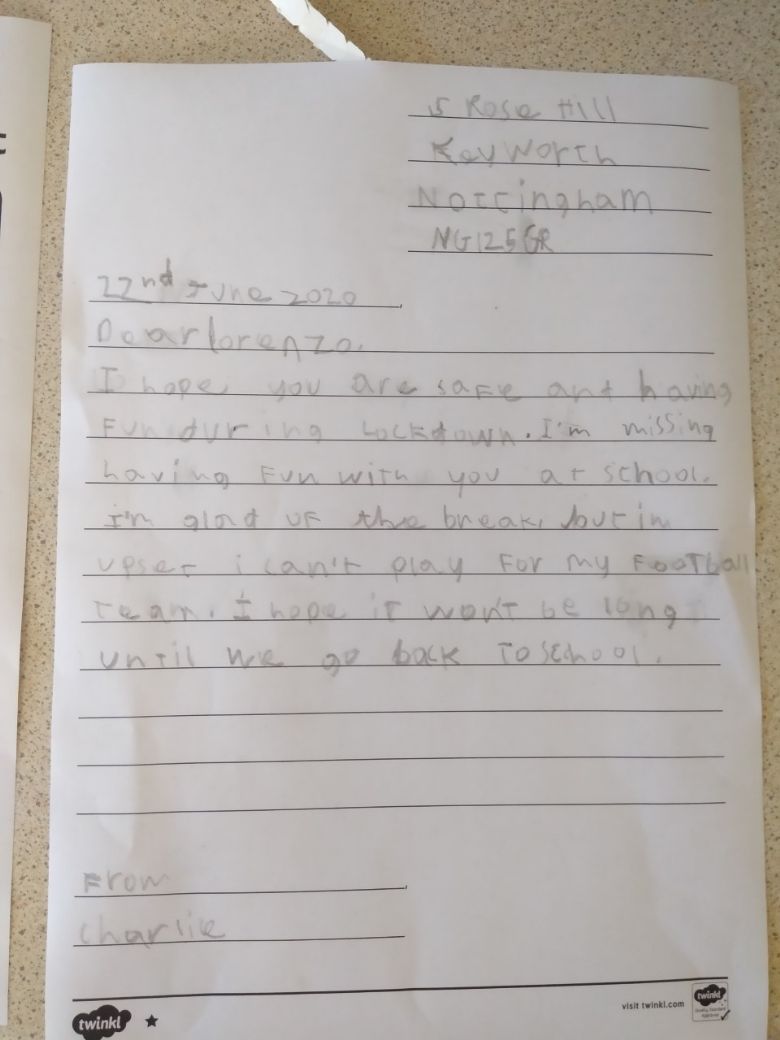 5 Rose Hill
Keyworth
Nottingham
NG12 5GR
22nd June 2020
Dear lorenzo.
I hope you are safe and having
Fun during Lockdown. I'm missing
having Fun with you at school.
I'm glad of the break, but im
upset i can't play For my FootBall
Team. I hope it won't be long
until we go back To school.
From
Charlie
visit twinkl.com
twinkl
twinkl